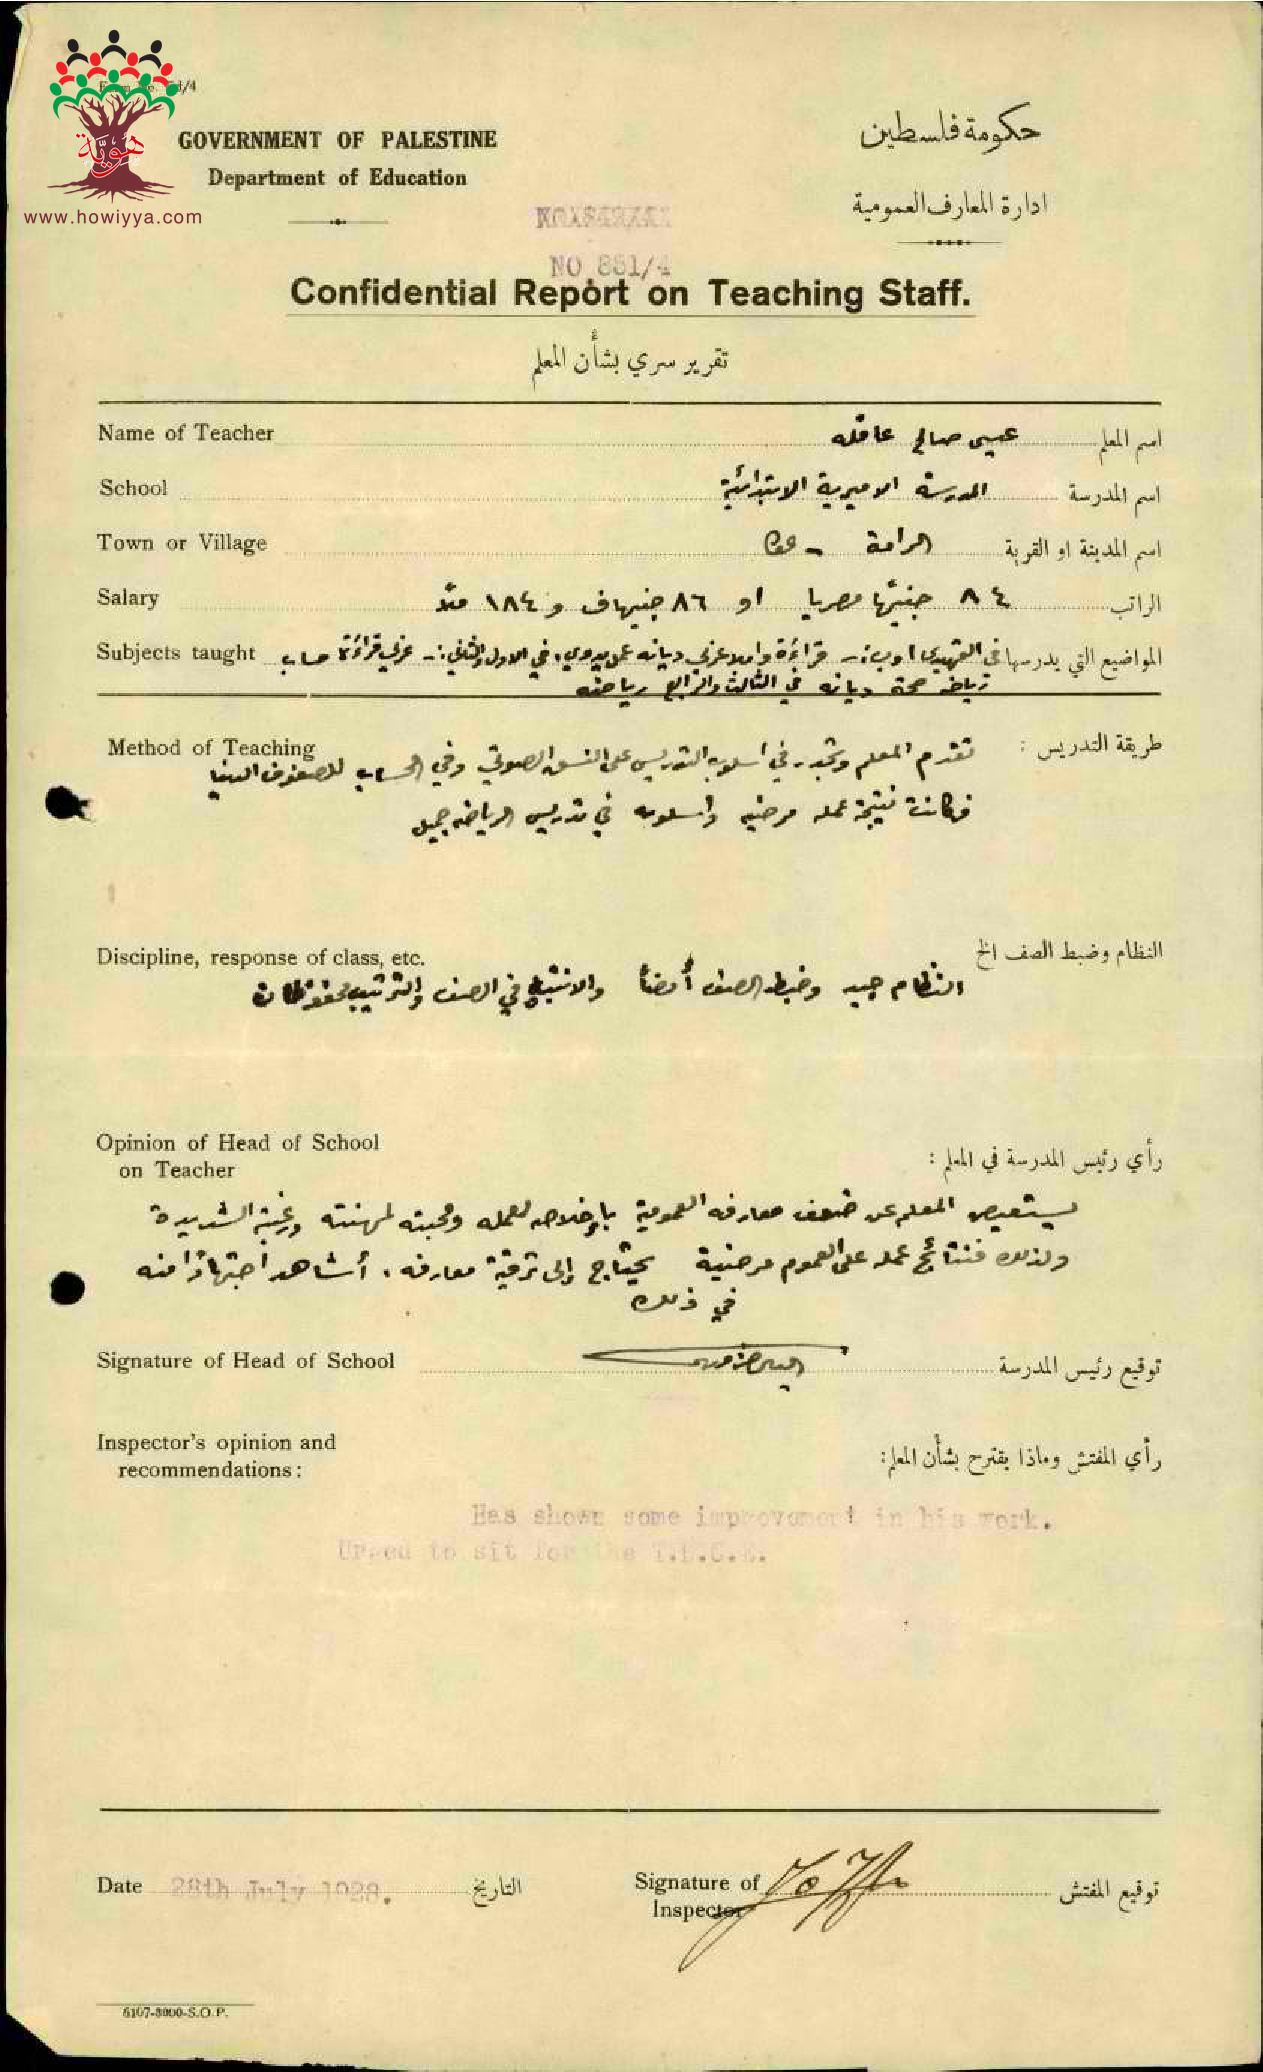 Form No. Ed/4
هوية
www.howiyya.com
GOVERNMENT OF PALESTINE
Department of Education
حكومة فلسطين
ادارة المعارف العمومية
NO 881/4
Confidential Report on Teaching Staff.
تقرير سري بشأن المعلم
Name of Teacher عيسى صالح عاقله اسم المعلم
School المدرسة الاميرية الابتدائية اسم المدرسة
Town or Village الرامة - عكا اسم المدينة او القرية
Salary ٨٤ جنيهًا مصريا او ٨٦ جنيها ف و ١٨٤ ملًا الراتب
Subjects taught المواضيع التي يدرسها في التمهيدي ا وب :- قراءة واملاء عربي ديانه عمل يدوي، في الاول والثاني :- عربي قراءة حساب
رياضه صحة ديانه في الثالث والرابع رياضه
Method of Teaching طريقة التدريس :
تقدم المعلم وتجدد في اسلوب التدريس على النسق الصوتي وفي الحساب للصفوف الدنيا
فكانت نتيجة عمله مرضيه واسلوبه في تدريس الرياضه جميل
Discipline, response of class, etc. النظام وضبط الصف الخ
النظام جيد وضبط الصف أيضاً والانتباه في الصف والترتيب محفوظان
Opinion of Head of School
on Teacher
رأي رئيس المدرسة في المعلم :
يستعيض المعلم عن ضعف معارفه العمومية بإخلاصه لعمله ومحبته لمهنته ورغبته الشديدة
ولذلك فنتائج عمله على العموم مرضية يحتاج إلى ترقية معارفه. أشاهد اجتهادًا منه
في ذلك
Signature of Head of School توقيع رئيس المدرسة
Inspector's opinion and
recommendations :
رأي المفتش وماذا يقترح بشأن المعلم:
Has shown some improvement in his work.
Urged to sit for the T.L.C.E.
Date 28th July 1928. التاريخ
Signature of
Inspector
توقيع المفتش
6107-3000-S.O.P.